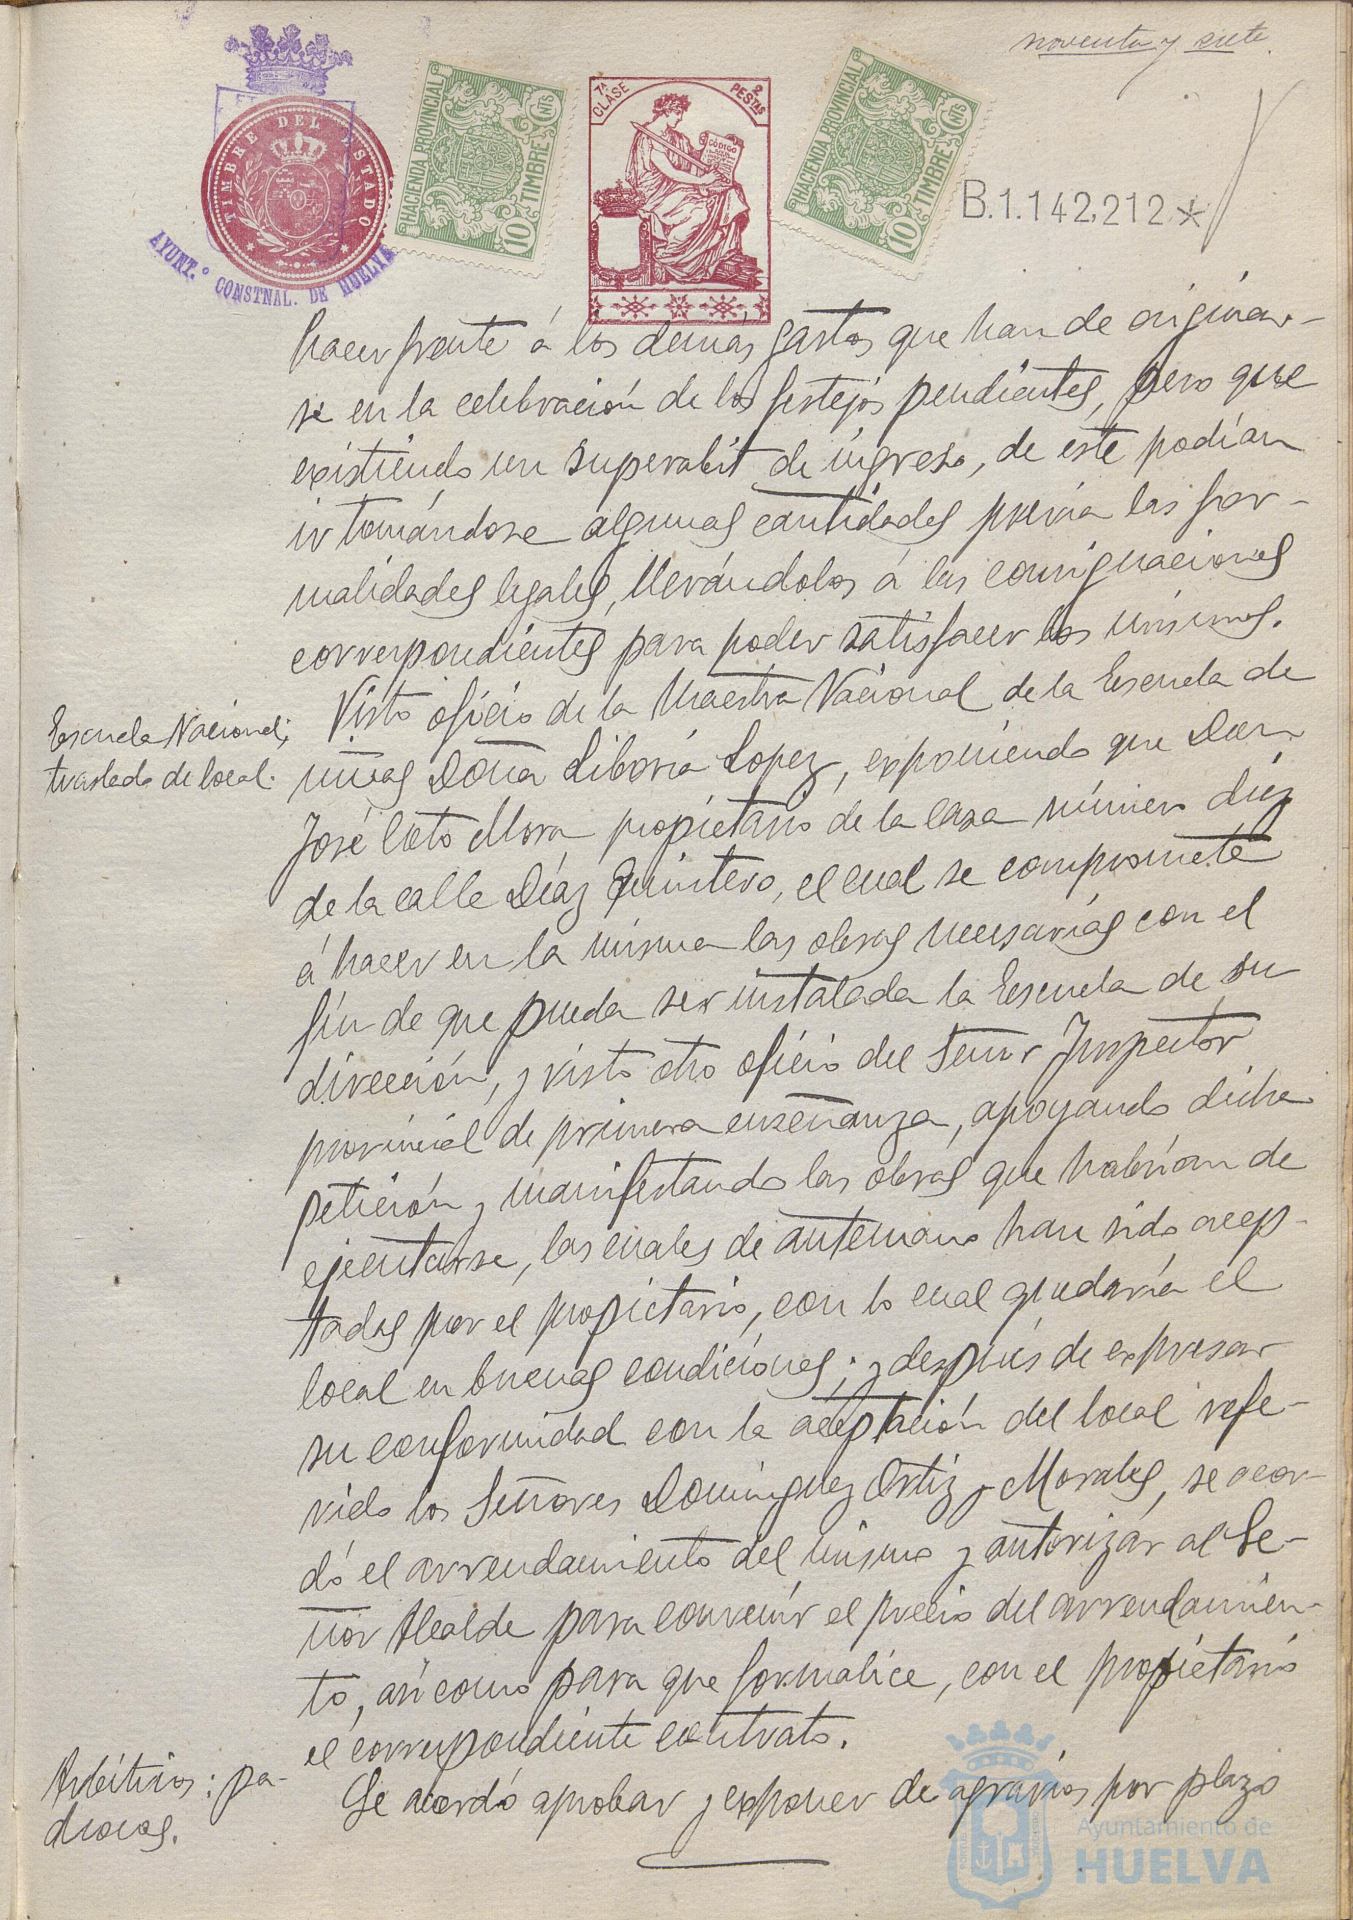 noventa y siete.
TIMBRE DEL ESTADO
AYUNT.º CONSTNAL. DE HUELVA
HACIENDA PROVINCIAL
10 TIMBRE CNTS
7ª CLASE
2 PESTAS
CÓDIGO
HACIENDA PROVINCIAL
10 TIMBRE CNTS
B.1.142,212*
hacer frente á los demás gastos que han de originar-
se en la celebración de los festejos pendientes, pero que
existiendo un superabit de ingreso, de este podían
ir tomándose algunas cantidades previa las for-
malidades legales, llevándolos á las consignaciones
correspondientes para poder satisfacer los mismos.
Escuela Nacional;
traslado de local.
Visto oficio de la Maestra Nacional de la Escuela de
niñas Doña Liboria Lopez, exponiendo que Don
José Mora propietario de la casa número diez
de la calle Díaz Quintero, el cual se compromete
á hacer en la misma las obras necesarias con el
fin de que pueda ser instalada la Escuela de su
dirección, y visto otro oficio del Señor Inspector
provincial de primera enseñanza, apoyando dicha
petición y manifestando las obras que habrían de
ejecutarse, las cuales de antemano han sido acep-
tadas por el propietario, con lo cual quedaría el
local en buenas condiciones; y después de expresar
su conformidad con la aceptación del local refe-
rido los Señores Dominguez Ortiz y Morales, se acor-
dó el arrendamiento del mismo y autorizár al Se-
ñor Alcalde para convenir el precio del arrendamien-
to, así como para que formalice, con el propietario
el correspondiente contrato.
Arbitrios: pa-
drones.
Se acordó aprobar y exponer de agravios por plazo
Ayuntamiento de
HUELVA